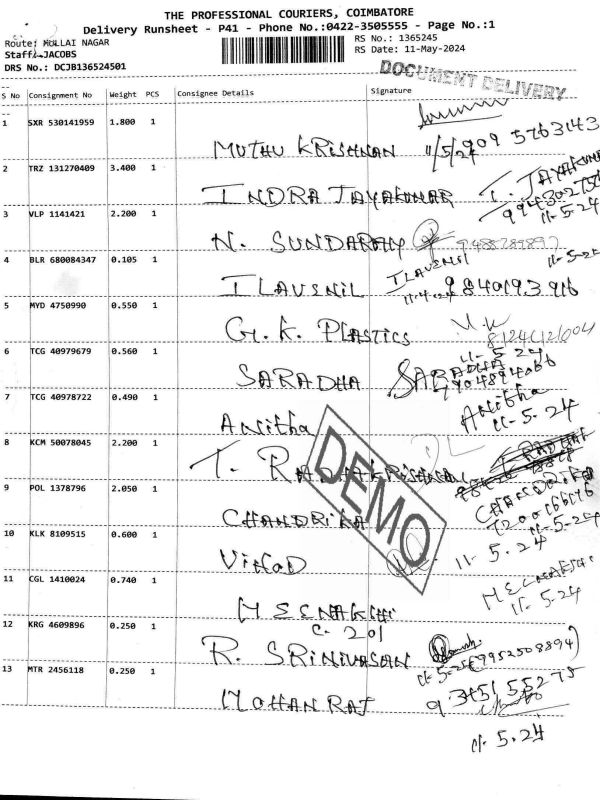 THE PROFESSIONAL COURIERS, COIMBATORE
Delivery Runsheet - P41 - Phone No.:0422-3505555 - Page No.:1
Route: MULLAI NAGAR
RS No.: 1365245
Staff: JACOBS
RS Date: 11-May-2024
DRS No.: DCJB136524501
DOCUMENT DELIVERY
S No Consignment No Weight PCS Consignee Details Signature
1 SXR 530141959 1.800 1
MUTHU KRISHNAN 11/5/24 909 5763143
2 TRZ 131270409 3.400 1
INDRA JAYAKUMAR
11-5-24
3 VLP 1141421 2.200 1
N. SUNDARAM
11-5-24
4 BLR 680084347 0.105 1
ILAVENIL ILAVENIL 9840193916
5 MYD 4750990 0.550 1
G.K. PLASTICS
11-5-24
6 TCG 40979679 0.560 1
SARADHA SARADHA
7 TCG 40978722 0.490 1
Anitha Anitha
11-5-24
8 KCM 50078045 2.200 1
T. RADHAKRISHNAN
9 POL 1378796 2.050 1
CHANDRIKA
11-5-24
10 KLK 8109515 0.600 1
VINOD 11.5.24
11 CGL 1410024 0.740 1
MEENAKSHI
11-5-24
12 KRG 4609896 0.250 1
C-201
R. SRINIVASAN 11-5-24 (9952508894)
13 MTR 2456118 0.250 1
MOHAN RAJ 9345155275
11-5.24
DEMO